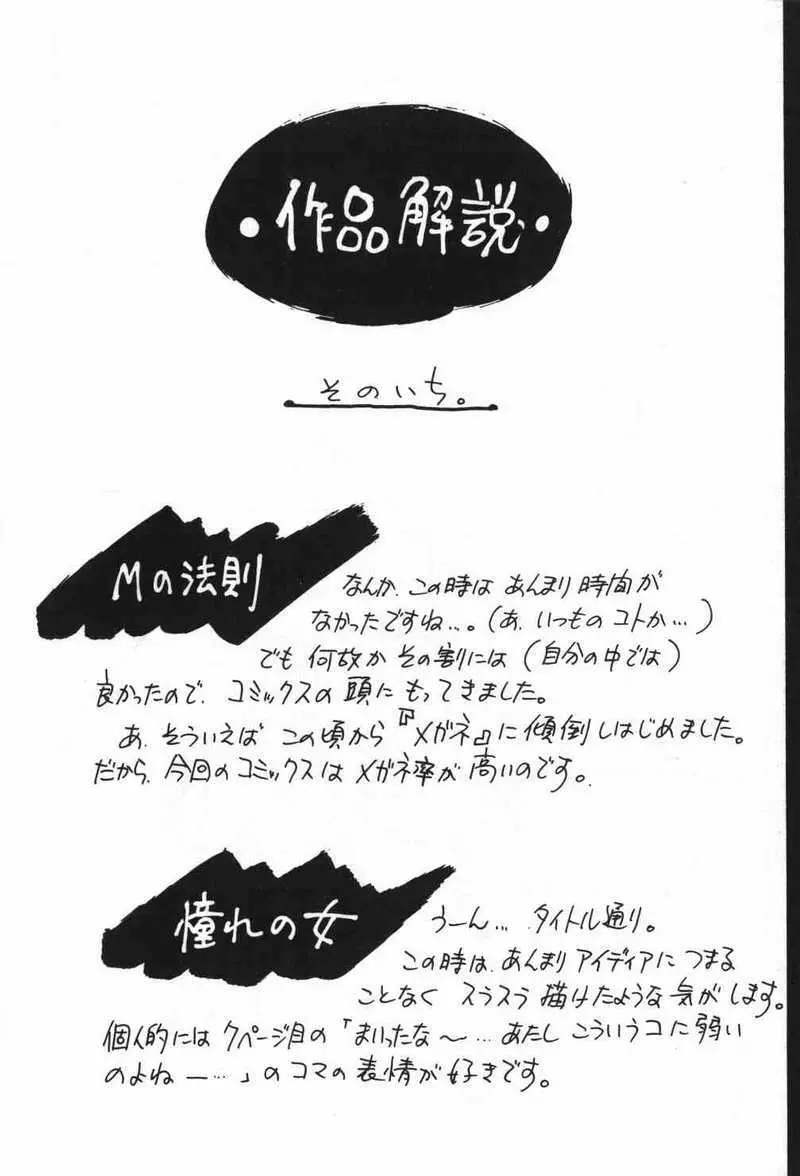 ・作品解説・
そのいち。
Mの法則
なんか、この時は あんまり 時間が
なかったですね…。(あ、いつもの コトか…)
でも 何故か その割には (自分の中では)
良かったので、コミックスの 頭に もってきました。
あ、そういえば この頃から 『メガネ』に 傾倒しはじめました。
だから、今回の コミックスは メガネ率が 高いのです。
憧れの女
うーん… タイトル通り。
この時は、あんまり アイディアに つまる
ことなく スラスラ 描けたような 気がします。
個人的には 7ページ目の 「まいったな〜…あたし こういうコに 弱い
のよねー…」の コマの 表情が 好きです。